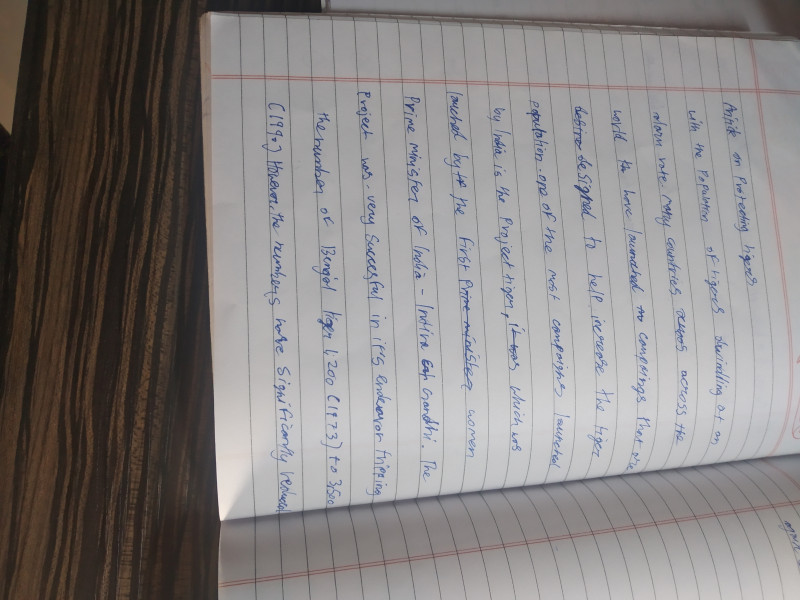 Article on Protecting tigeres
with the Population of tigeres dwindling at an
alarm rate. many countries across the
world to have launched campaings that are
designed to help increase the tiger
population. one of the most compaigns launched
by India is the Project tiger, which was
launched by the first women
Prime minister of India - Indira Gandhi. The
Project was. very Succesful in its endevor tripping
the number of Bengal tiger 1,200 (1973) to 3,500
(1990) However, the numbers have significantly reduced